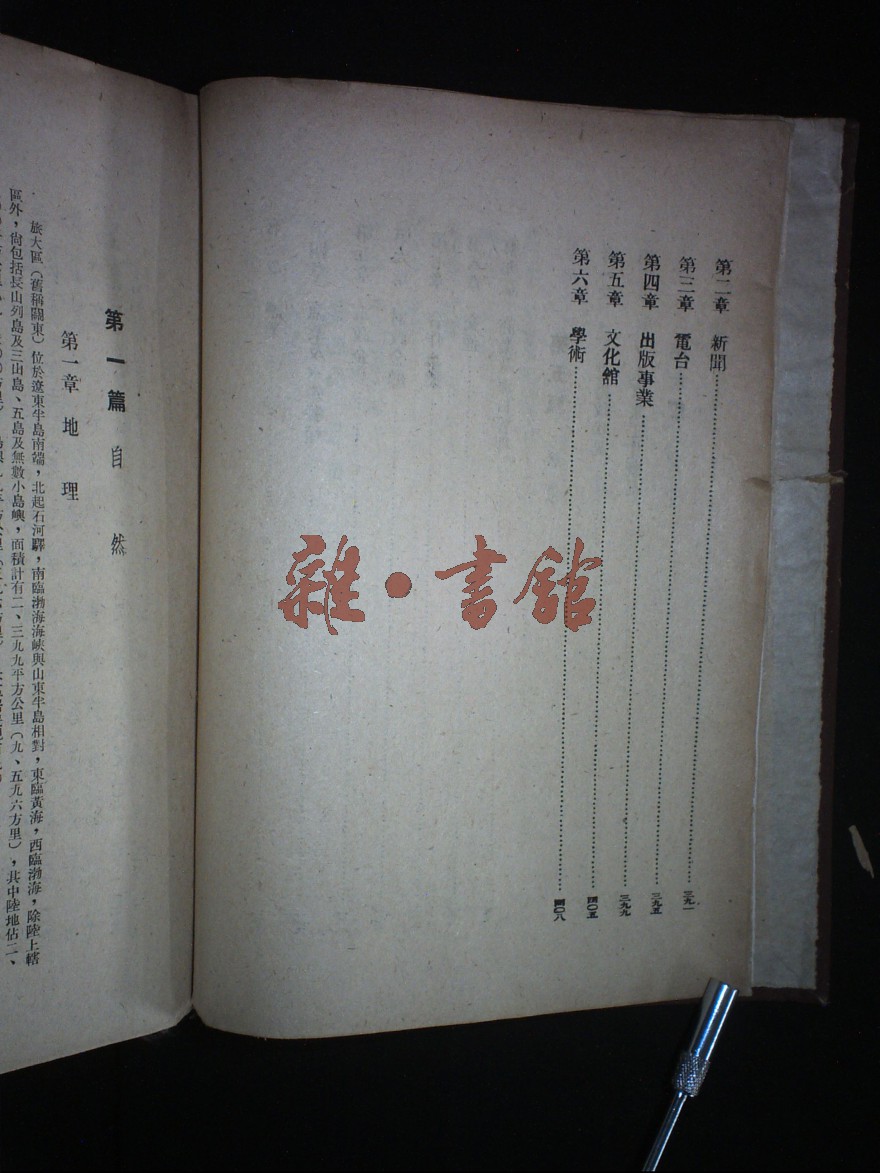 第二章 新聞……三九一
第三章 電台……三九五
第四章 出版事業……三九九
第五章 文化舘……四〇五
第六章 學術……四〇八
雜·書館
第一篇 自然
第一章 地理
旅大區(舊稱關東)位於遼東半島南端,北起石河驛,南臨渤海海峽與山東半島相對,東臨黃海,西臨渤海,除陸上轄
區外,尙包括長山列島及三山島、五島及無數小島嶼,面積計有二、三九九平方公里(九、五九六方里),其中陸地佔二、